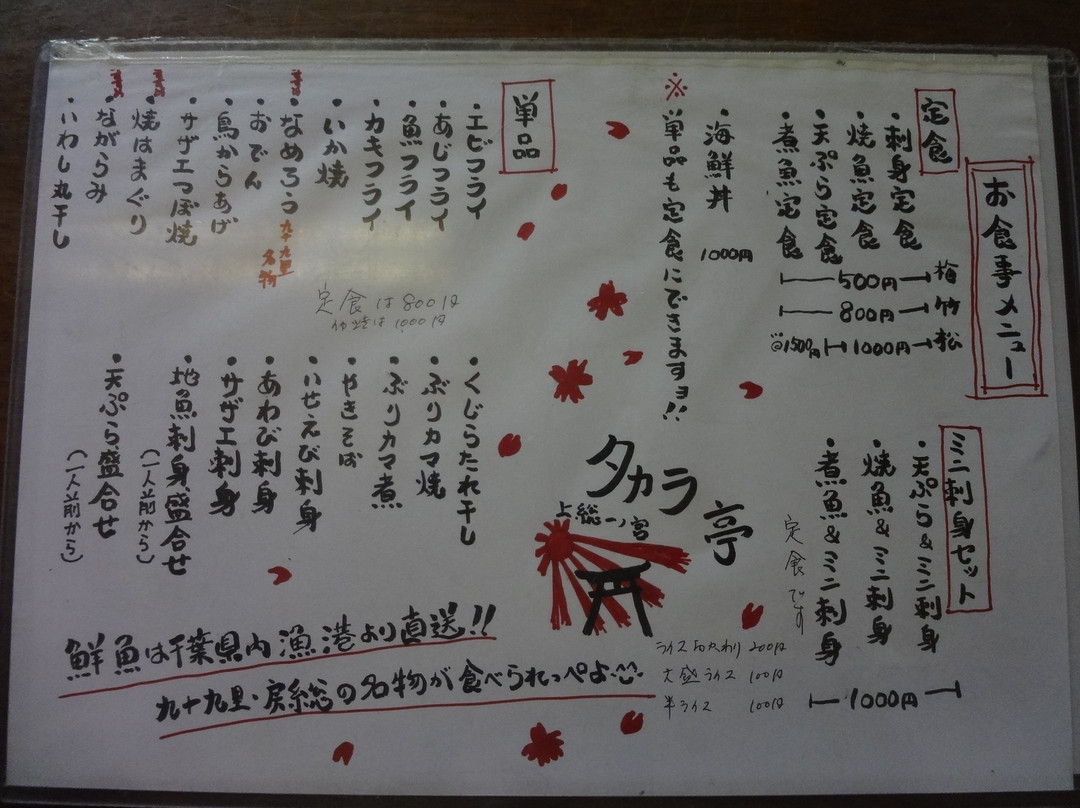 お食事メニュー
定食
・刺身定食
・焼魚定食
・天ぷら定食
・煮魚定食
梅 500円
竹 800円
松 1000円 1500円
・海鮮丼 1000円
※単品も定食にできますョ!!
ミニ刺身セット
・天ぷら&ミニ刺身
・焼魚&ミニ刺身
・煮魚&ミニ刺身
1000円
定食です
ライスおかわり 200円
大盛ライス 100円
半ライス 100円
タカラ亭
上総一ノ宮
単品
・エビフライ
・あじフライ
・魚フライ
・カキフライ
・いか焼
・なめろう 九十九里名物
・おでん
・鳥からあげ
・サザエつぼ焼
・焼はまぐり
・ながらみ
・いわし丸干し
定食は800円
1000円
・くじらたれ干し
・ぶりカマ焼
・ぶりカマ煮
・やきそば
・いせえび刺身
・あわび刺身
・サザエ刺身
・地魚刺身盛合せ
(一人前から)
・天ぷら盛合せ
(一人前から)
鮮魚は千葉県内漁港より直送!!
九十九里・房総の名物が食べられっぺよ